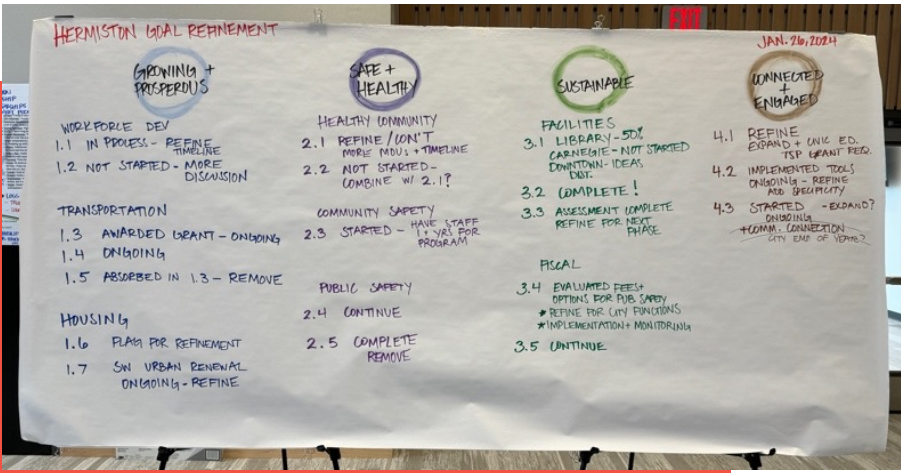 HERMISTON GOAL REFINEMENT
EXIT
JAN. 26, 2024
GROWING +
PROSPEROUS
WORKFORCE DEV
1.1 IN PROCESS - REFINE
TIMELINE
1.2 NOT STARTED - MORE
DISCUSSION
TRANSPORTATION
1.3 AWARDED GRANT - ONGOING
1.4 ONGOING
1.5 ABSORBED IN 1.3 - REMOVE
HOUSING
1.6 FLAG FOR REFINEMENT
1.7 SW URBAN RENEWAL
ONGOING - REFINE
SAFE +
HEALTHY
HEALTHY COMMUNITY
2.1 REFINE / CON'T
MORE MOUS + TIMELINE
2.2 NOT STARTED -
COMBINE W/ 2.1?
COMMUNITY SAFETY
2.3 STARTED - HAVE STAFF
YRS FOR
PROGRAM
PUBLIC SAFETY
2.4 CONTINUE
2.5 COMPLETE
REMOVE
SUSTAINABLE
FACILITIES
3.1 LIBRARY - 50%
CARNEGIE - NOT STARTED
DOWNTOWN - IDEAS
DIST.
3.2 COMPLETE!
3.3 ASSESSMENT COMPLETE
REFINE FOR NEXT
PHASE
FISCAL
3.4 EVALUATED FEES +
OPTIONS FOR PUB SAFETY
* REFINE FOR CITY FUNCTIONS
* IMPLEMENTATION + MONITORING
3.5 CONTINUE
CONNECTED
+
ENGAGED
4.1 REFINE
EXPAND + CIVIC ED.
TSP GRANT REQ.
4.2 IMPLEMENTED TOOLS
ONGOING - REFINE
ADD SPECIFICITY
4.3 STARTED - EXPAND?
ONGOING
+ COMM. CONNECTION
CITY EMP OF YEAR?